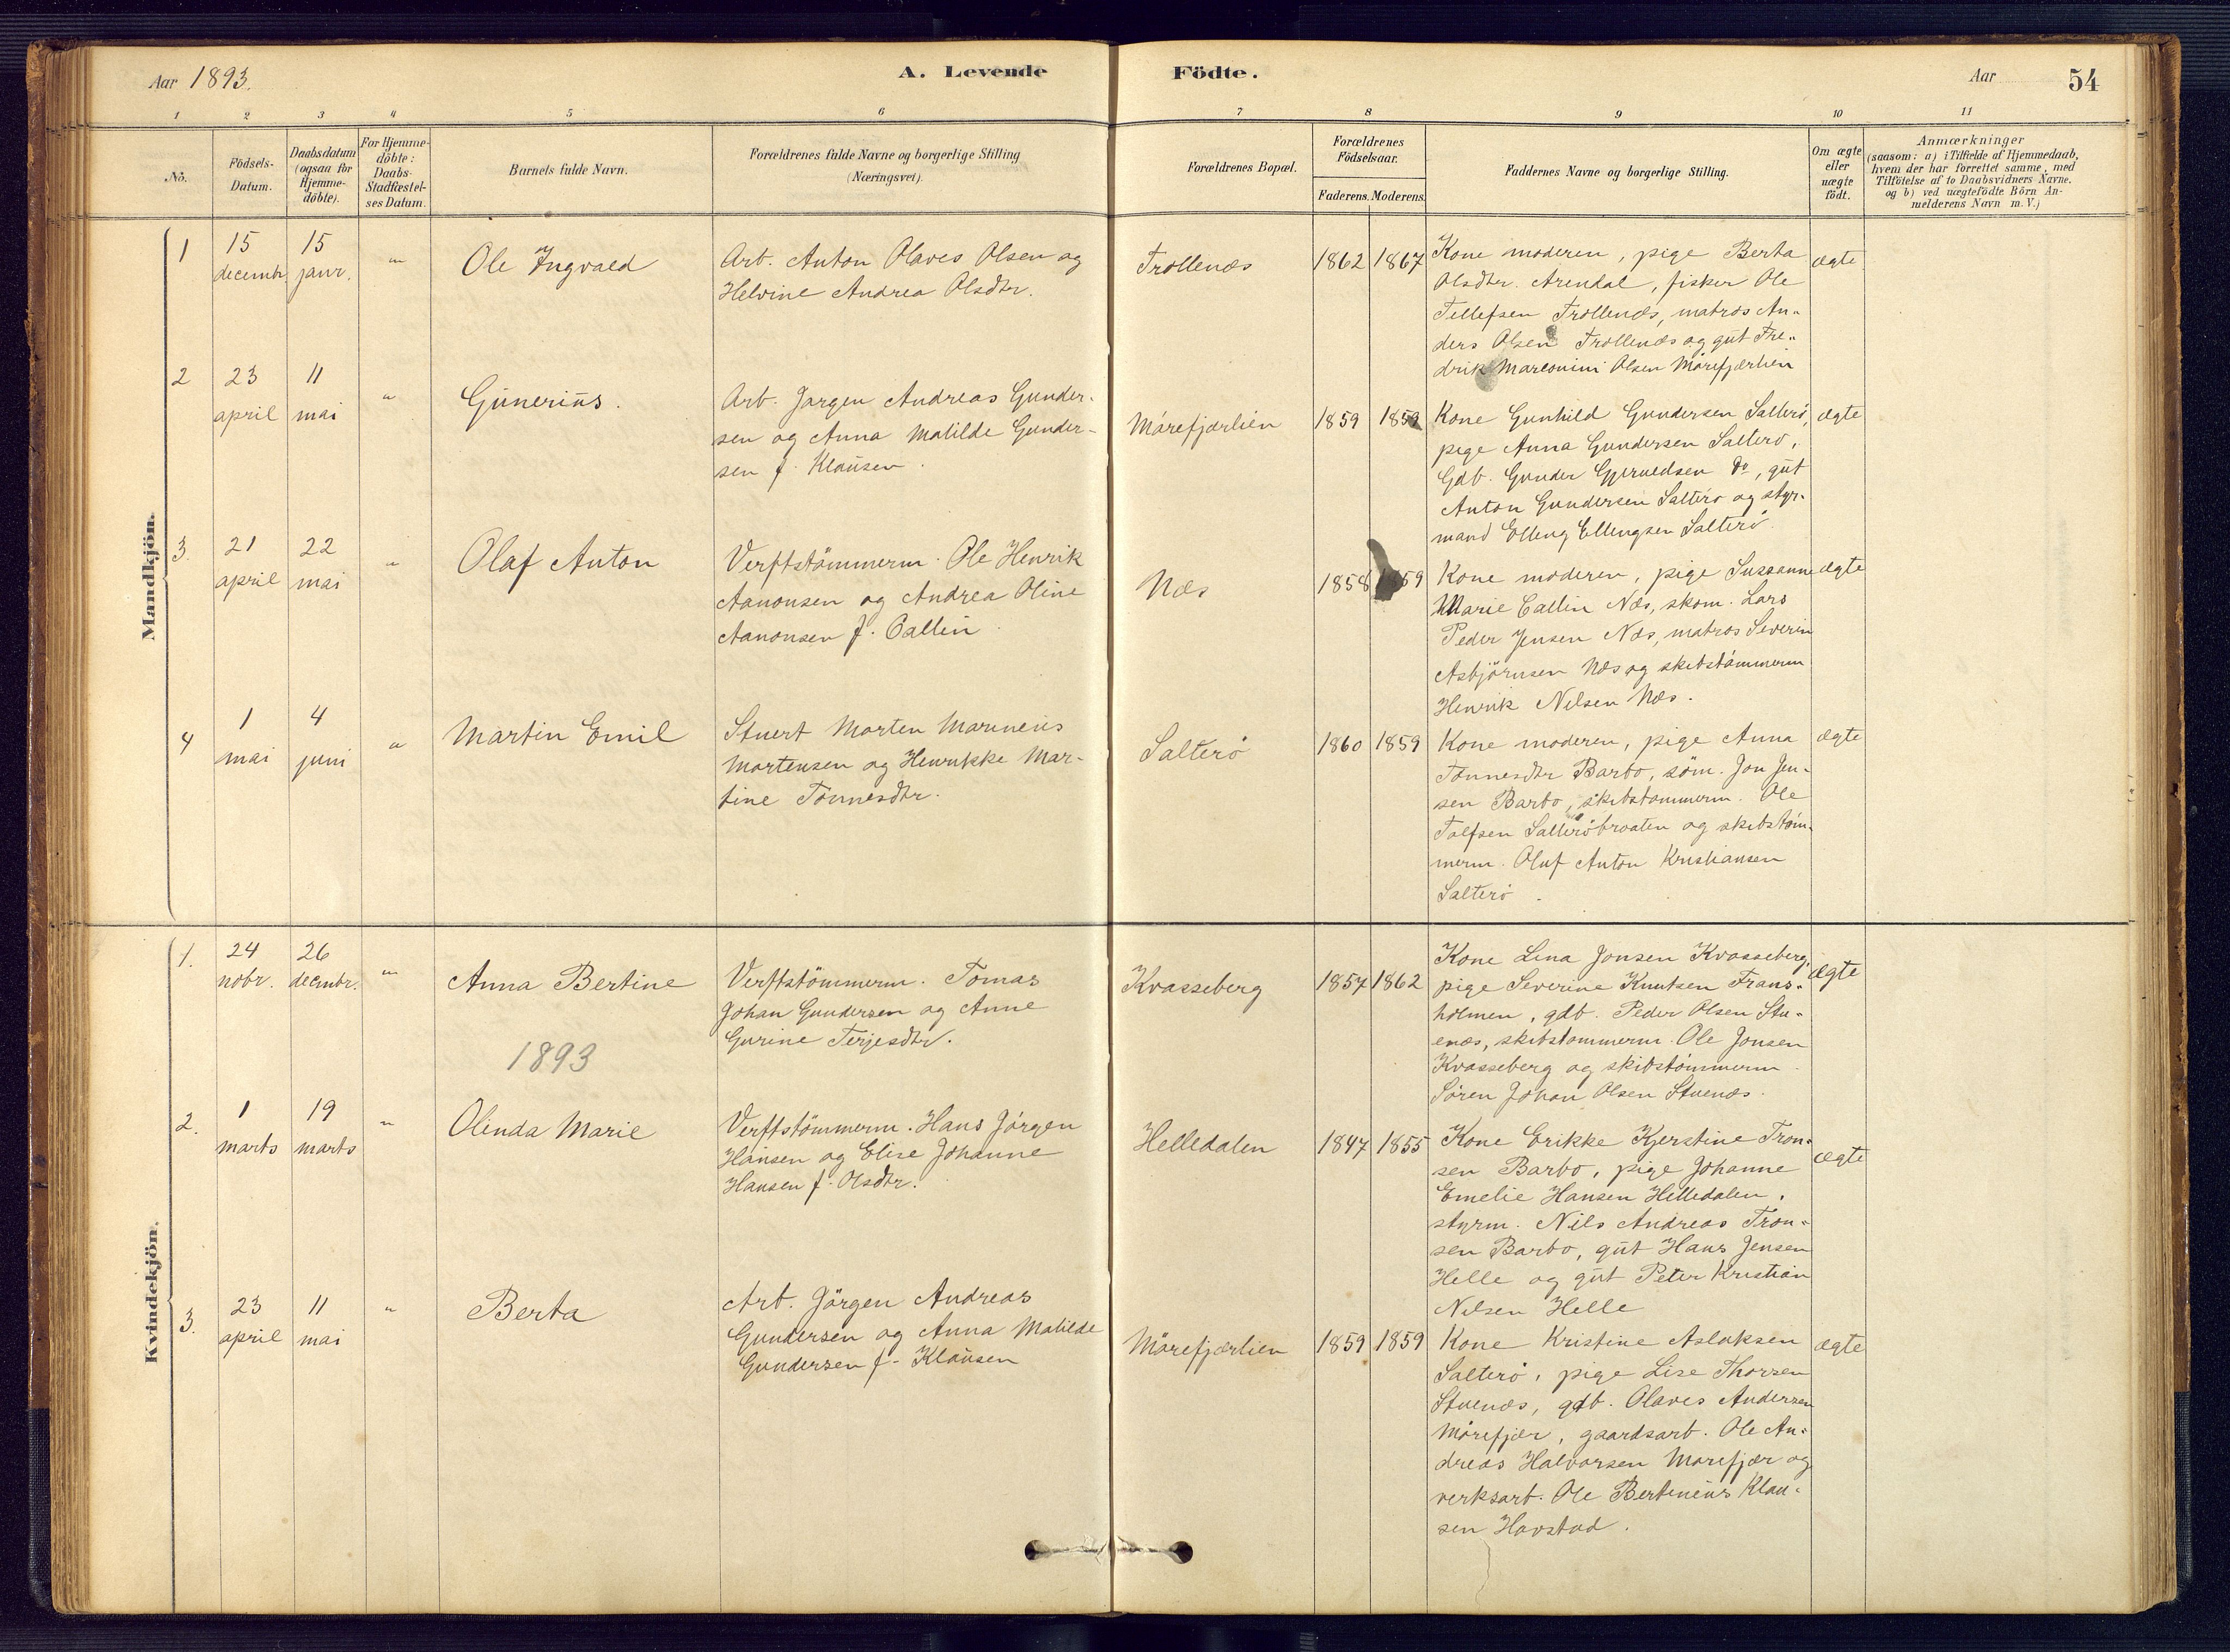 Aar 1893.
A. Levende
Födte.
Aar
54
1 2 3 4 5 6 7 8 9 10 11
No.
Födsels-
Datum.
Daabsdatum
(ogsaa for
Hjemme-
döbte).
For Hjemme-
döbte:
Daabs-
Stadfæstel-
ses Datum.
Barnets fulde Navn.
Forældrenes fulde Navne og borgerlige Stilling
(Næringsvei).
Forældrenes Bopæl.
Forældrenes
Födselsaar.
Faderens. Moderens.
Faddernes Navne og borgerlige Stilling.
Om ægte
eller
uægte
födt.
Anmærkninger
(saasom: a) i Tilfælde af Hjemmedaab,
hvem der har forrettet samme, med
Tilföielse af to Daabsvidners Navne.
og b) ved uægtefödte Börn An-
melderens Navn m. V.)
Mandkjön.
1
15
decembr.
15
janr.
"
Ole Ingvald
Arb. Anton Olaves Olsen og
Helvine Andrea Olsdtr.
Trollenæs
1862
1867
Kone moderen, pige Berta
Olsdtr. Arendal, fisker Ole
Tellefsen Trollenæs, matros An-
ders Olsen Trollenæs og gut Fre-
drik Marconini Olsen Mörefjærlien
ægte
2
23
april
11
mai
"
Gunerius.
Arb. Jørgen Andreas Gunder-
sen og Anna Matilde Gunder-
sen f. Klausen.
Mörefjærlien
1859
1859
Kone Gunhild Gundersen Salterö,
pige Anna Gundersen Salterö,
Gdb. Gunder Gjeruldsen do, gut
Anton Gundersen Salterö og styr-
mand Elleng Ellengsen Salterö.
ægte
3.
21
april
22
mai
"
Olaf Anton
Verftstömmerm. Ole Henrik
Aanonsen og Andrea Oline
Aanonsen f. Callin
Næs
1858
1859
Kone moderen, pige Sussanne
Marie Callin Næs, skom. Lars
Peder Jensen Næs, matros Severin
Asbjörnsen Næs og skibstömmerm
Henrik Nilsen Næs.
ægte
4
1
mai
4
juni
"
Martin Emil
Stuert Morten Marineus
Mortensen og Henrikke Mar-
tine Tönnesdtr.
Salterö
1860
1859
Kone moderen, pige Anna
Tönnesdtr Barbo, söm. Jon Jen-
sen Barbo, skibstömmerm. Ole
Tolfsen Salteröbraaten og skibstöm-
merm. Oluf Anton Kristiansen
Salterö.
ægte
Kvindekjön.
1.
24
nobr.
26
decmbr.
"
Anna Bertine
Verftstömmerm. Tomas
Johan Gundersen og Anne
Gurine Terjesdtr.
Kvasseberg
1857
1862
Kone Lina Jonsen Kvasseberg,
pige Severine Knutsen Frans-
holmen, gdb. Peder Olsen Stu-
enæs, skibstömmerm. Ole Jonsen
Kvasseberg og skibstömmerm.
Sören Johan Olsen Stuenæs.
ægte
1893
2.
1
marts
19
marts
"
Olinda Marie
Verftstömmerm. Hans Jörgen
Hansen og Elise Johanne
Hansen f. Olsdtr.
Helledalen
1847
1855
Kone Erikke Kjerstine Tron-
sen Barbo, pige Johanne
Emelie Hansen Helledalen,
styrm. Nils Andreas Tron-
sen Barbo, gut Hans Jensen
Helle og gut Peter Kristian
Nilsen Helle
ægte
3.
23
april
11
mai
"
Berta
Arb. Jörgen Andreas
Gundersen og Anna Matilde
Gundersen f. Klausen
Mörefjærlien
1859
1859
Kone Kristine Aslaksen
Salterö, pige Lise Thorsen
Stuenæs, gdb. Olaves Andersen
Mörefjær, gaardsarb. Ole An-
dreas Halvorsen Mörefjær og
verksarb. Ole Bertineus Klau-
sen Havstad.
ægte